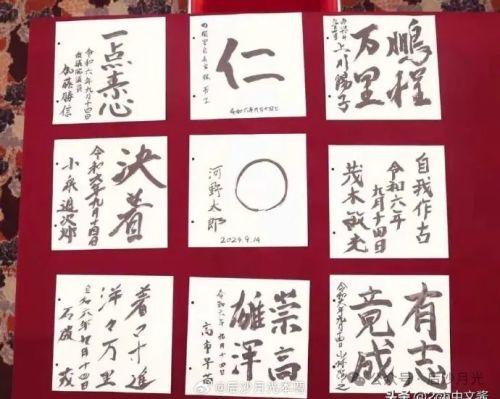 一点素心
令和六年九月十四日
衆議院議員
加藤勝信
仁
林芳正
令和六年九月十四日
鵬程
万里
上川陽子
決着
令和六年九月十四日
小泉進次郎
河野
太郎
2024.9.14
自我作古
令和六年
九月十四日
茂木敏充
着々寸進
洋々万里
令和六年九月十四日
石破 茂
崇高
雄渾
令和六年九月十四日
高市早苗
有志
竟成
令和六年九月十四日 小林鷹之
@后沙月光本尊
公众号·后沙月光